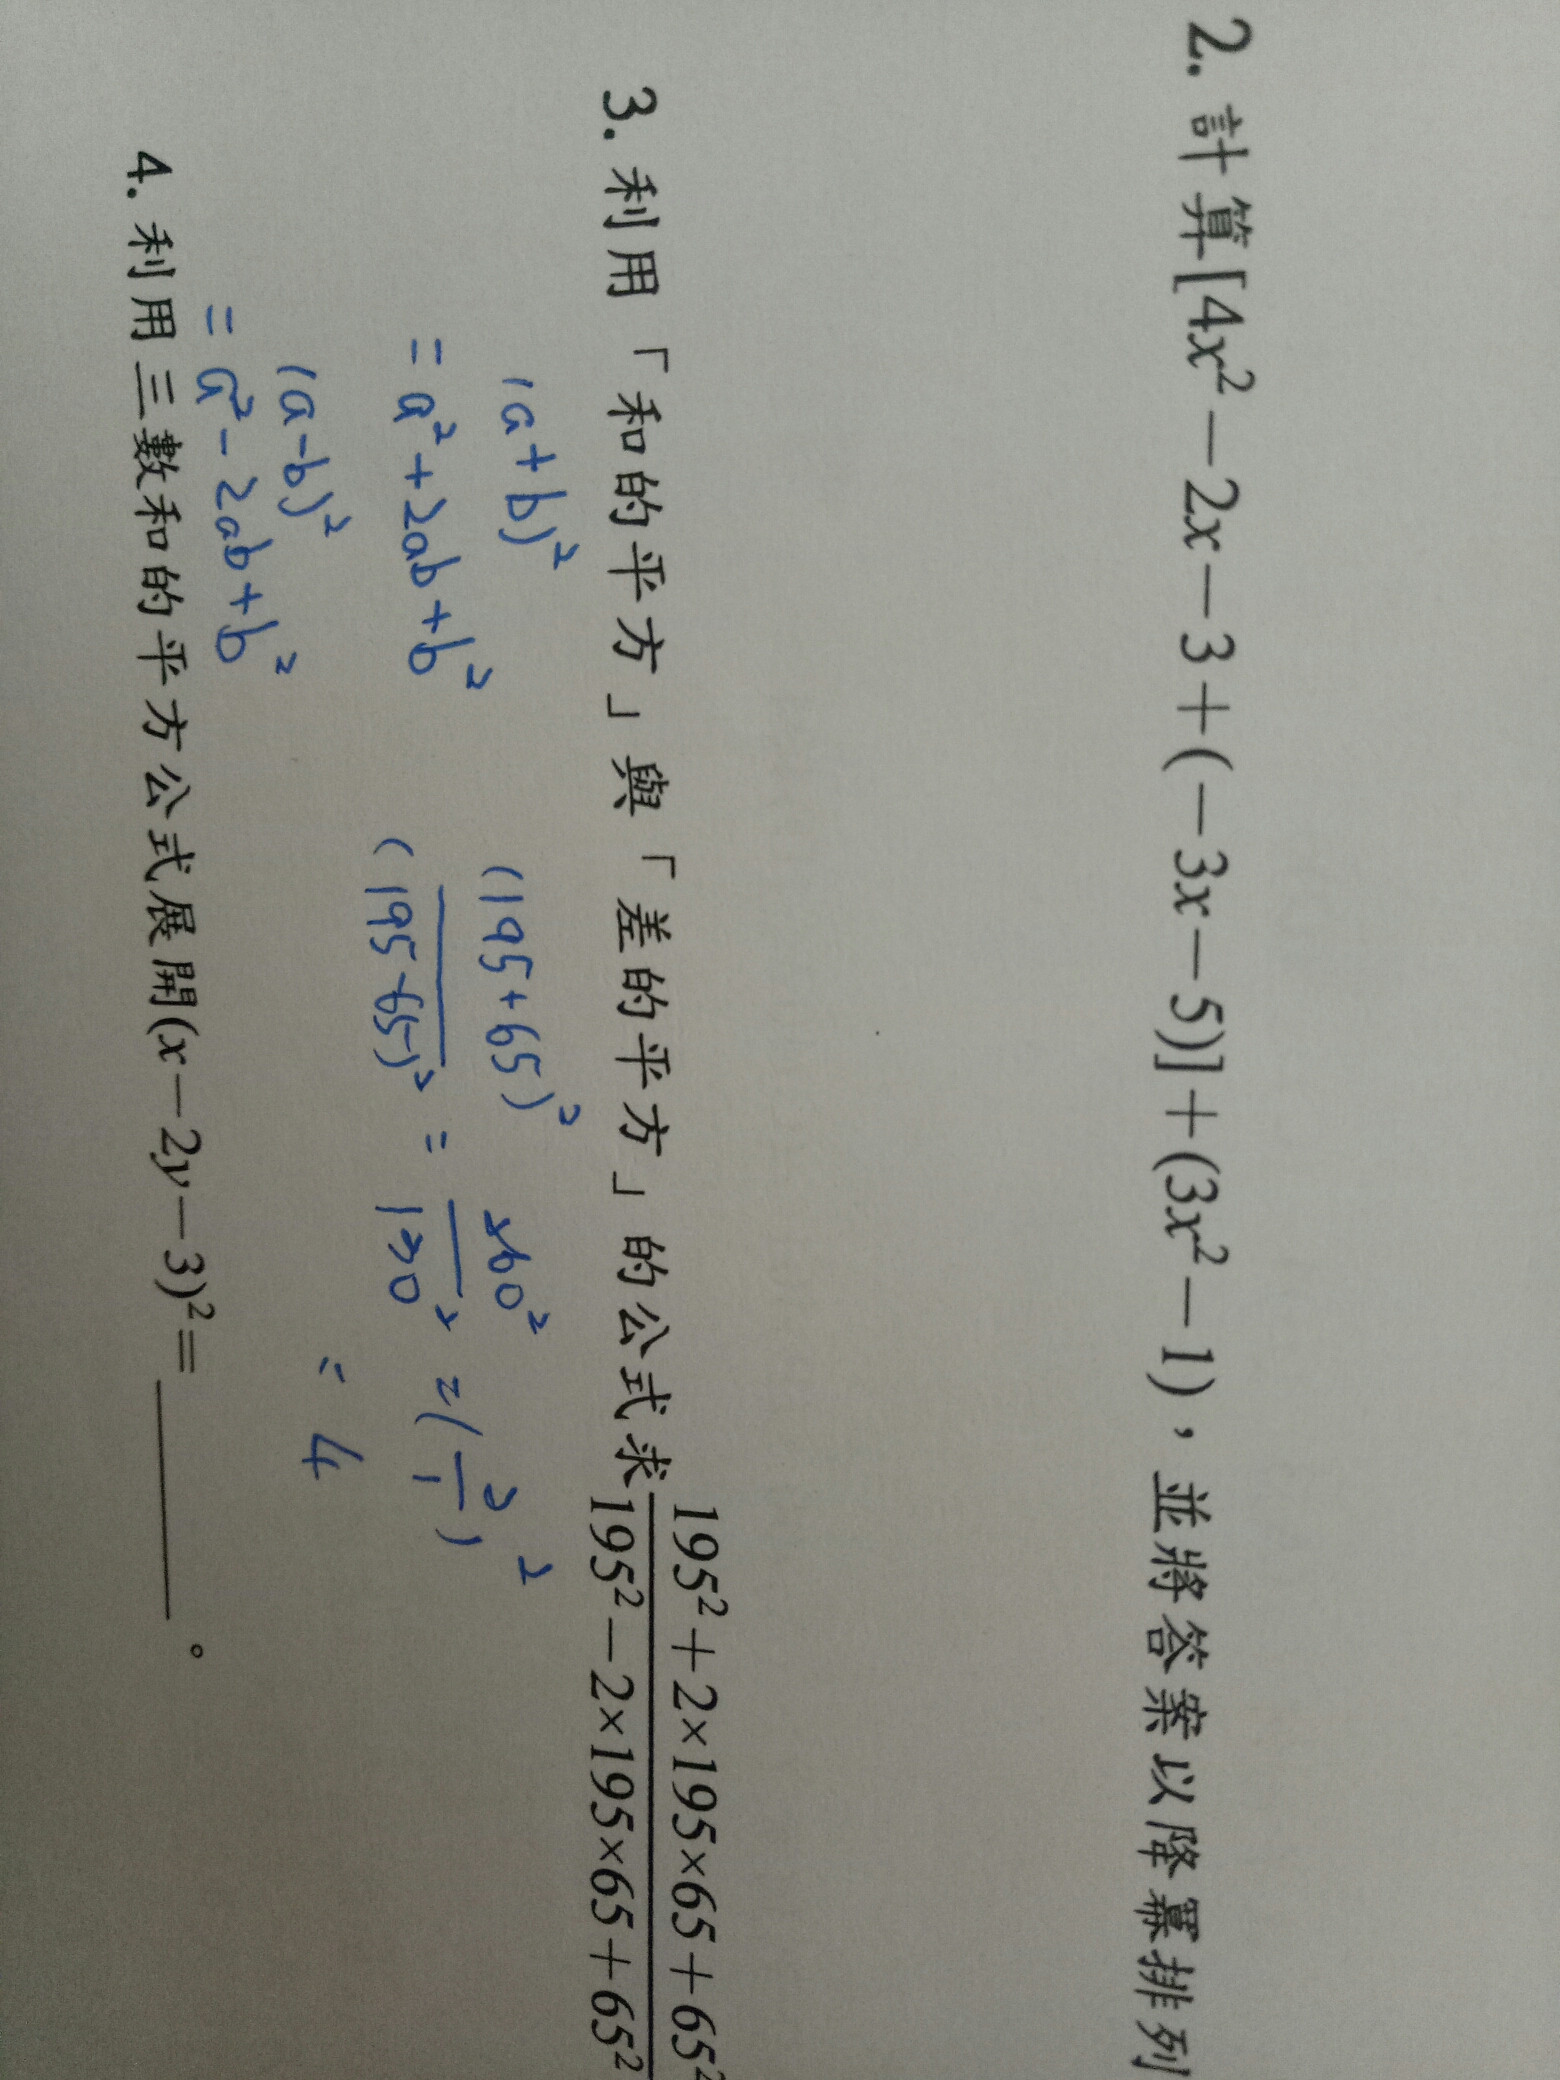 2. 計算[4x²－2x－3＋(－3x－5)]＋(3x²－1)，並將答案以降冪排列
3. 利用「和的平方」與「差的平方」的公式求
195²＋2×195×65＋65²
195²－2×195×65＋65²
(a+b)²
= a²+2ab+b²
(a-b)²
= a²-2ab+b²
(195+65)²
(195-65)²
=
260²
130²
= (2
1)²
= 4
4. 利用三數和的平方公式展開(x－2y－3)²＝＿＿＿＿。